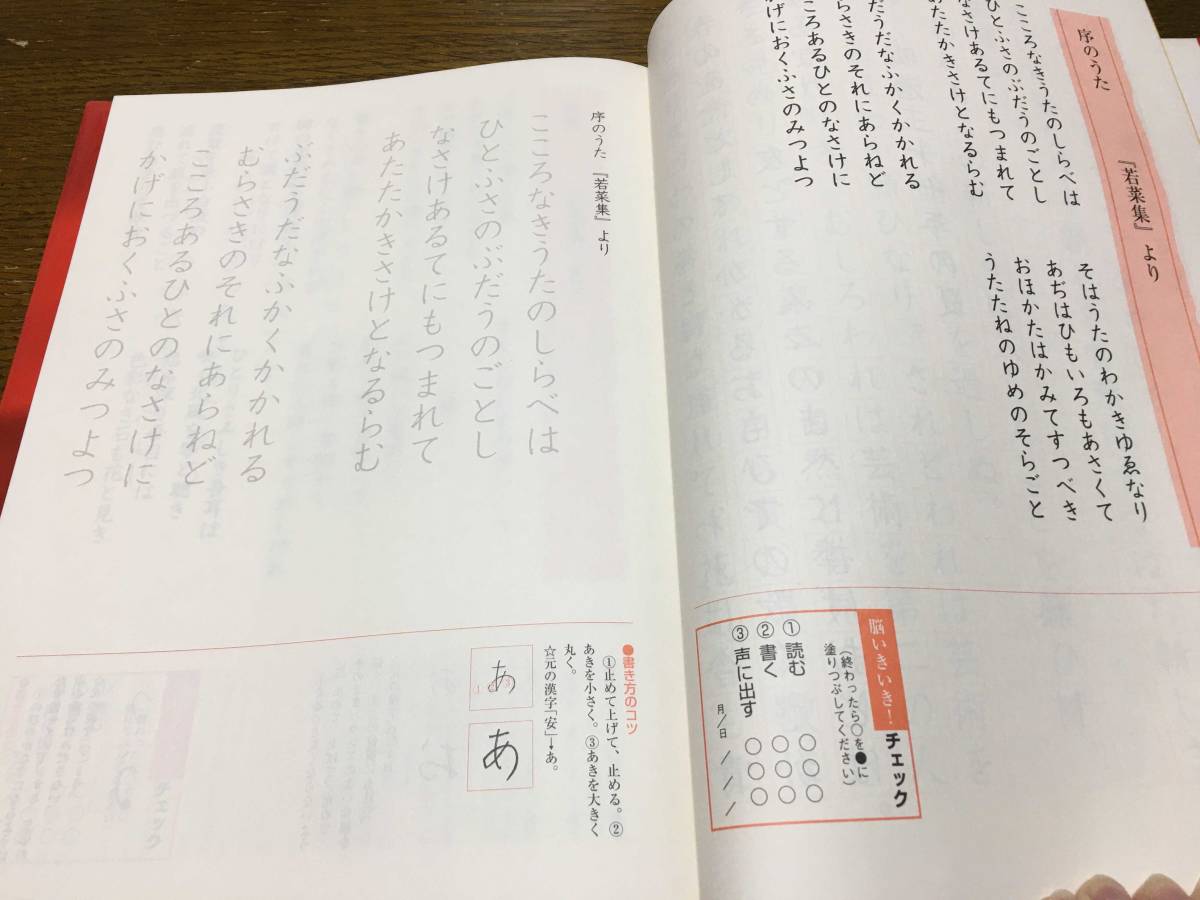 序のうた 『若菜集』より
こころなきうたのしらべは
ひとふさのぶだうのごとし
なさけあるてにもつまれて
あたたかきさけとなるらむ
ぶだうだなふかくかかれる
むらさきのそれにあらねど
こころあるひとのなさけに
かげにおくふさのみつよつ
そはうたのわかきゆゑなり
あぢはひもいろもあさくて
おほかたはかみてすつべき
うたたねのゆめのそらごと
脳いきいき!チェック
(終わったら○を●に
塗りつぶしてください)
①読む ○○○
②書く ○○○
③声に出す ○○○
月/日 / / /
序のうた 『若菜集』より
こころなきうたのしらべは
ひとふさのぶだうのごとし
なさけあるてにもつまれて
あたたかきさけとなるらむ
ぶだうだなふかくかかれる
むらさきのそれにあらねど
こころあるひとのなさけに
かげにおくふさのみつよつ
●書き方のコツ
①止めて上げて、止める。②
あきを小さく。③あきを大きく
丸く。
☆元の漢字「安」→あ。
あ
あ